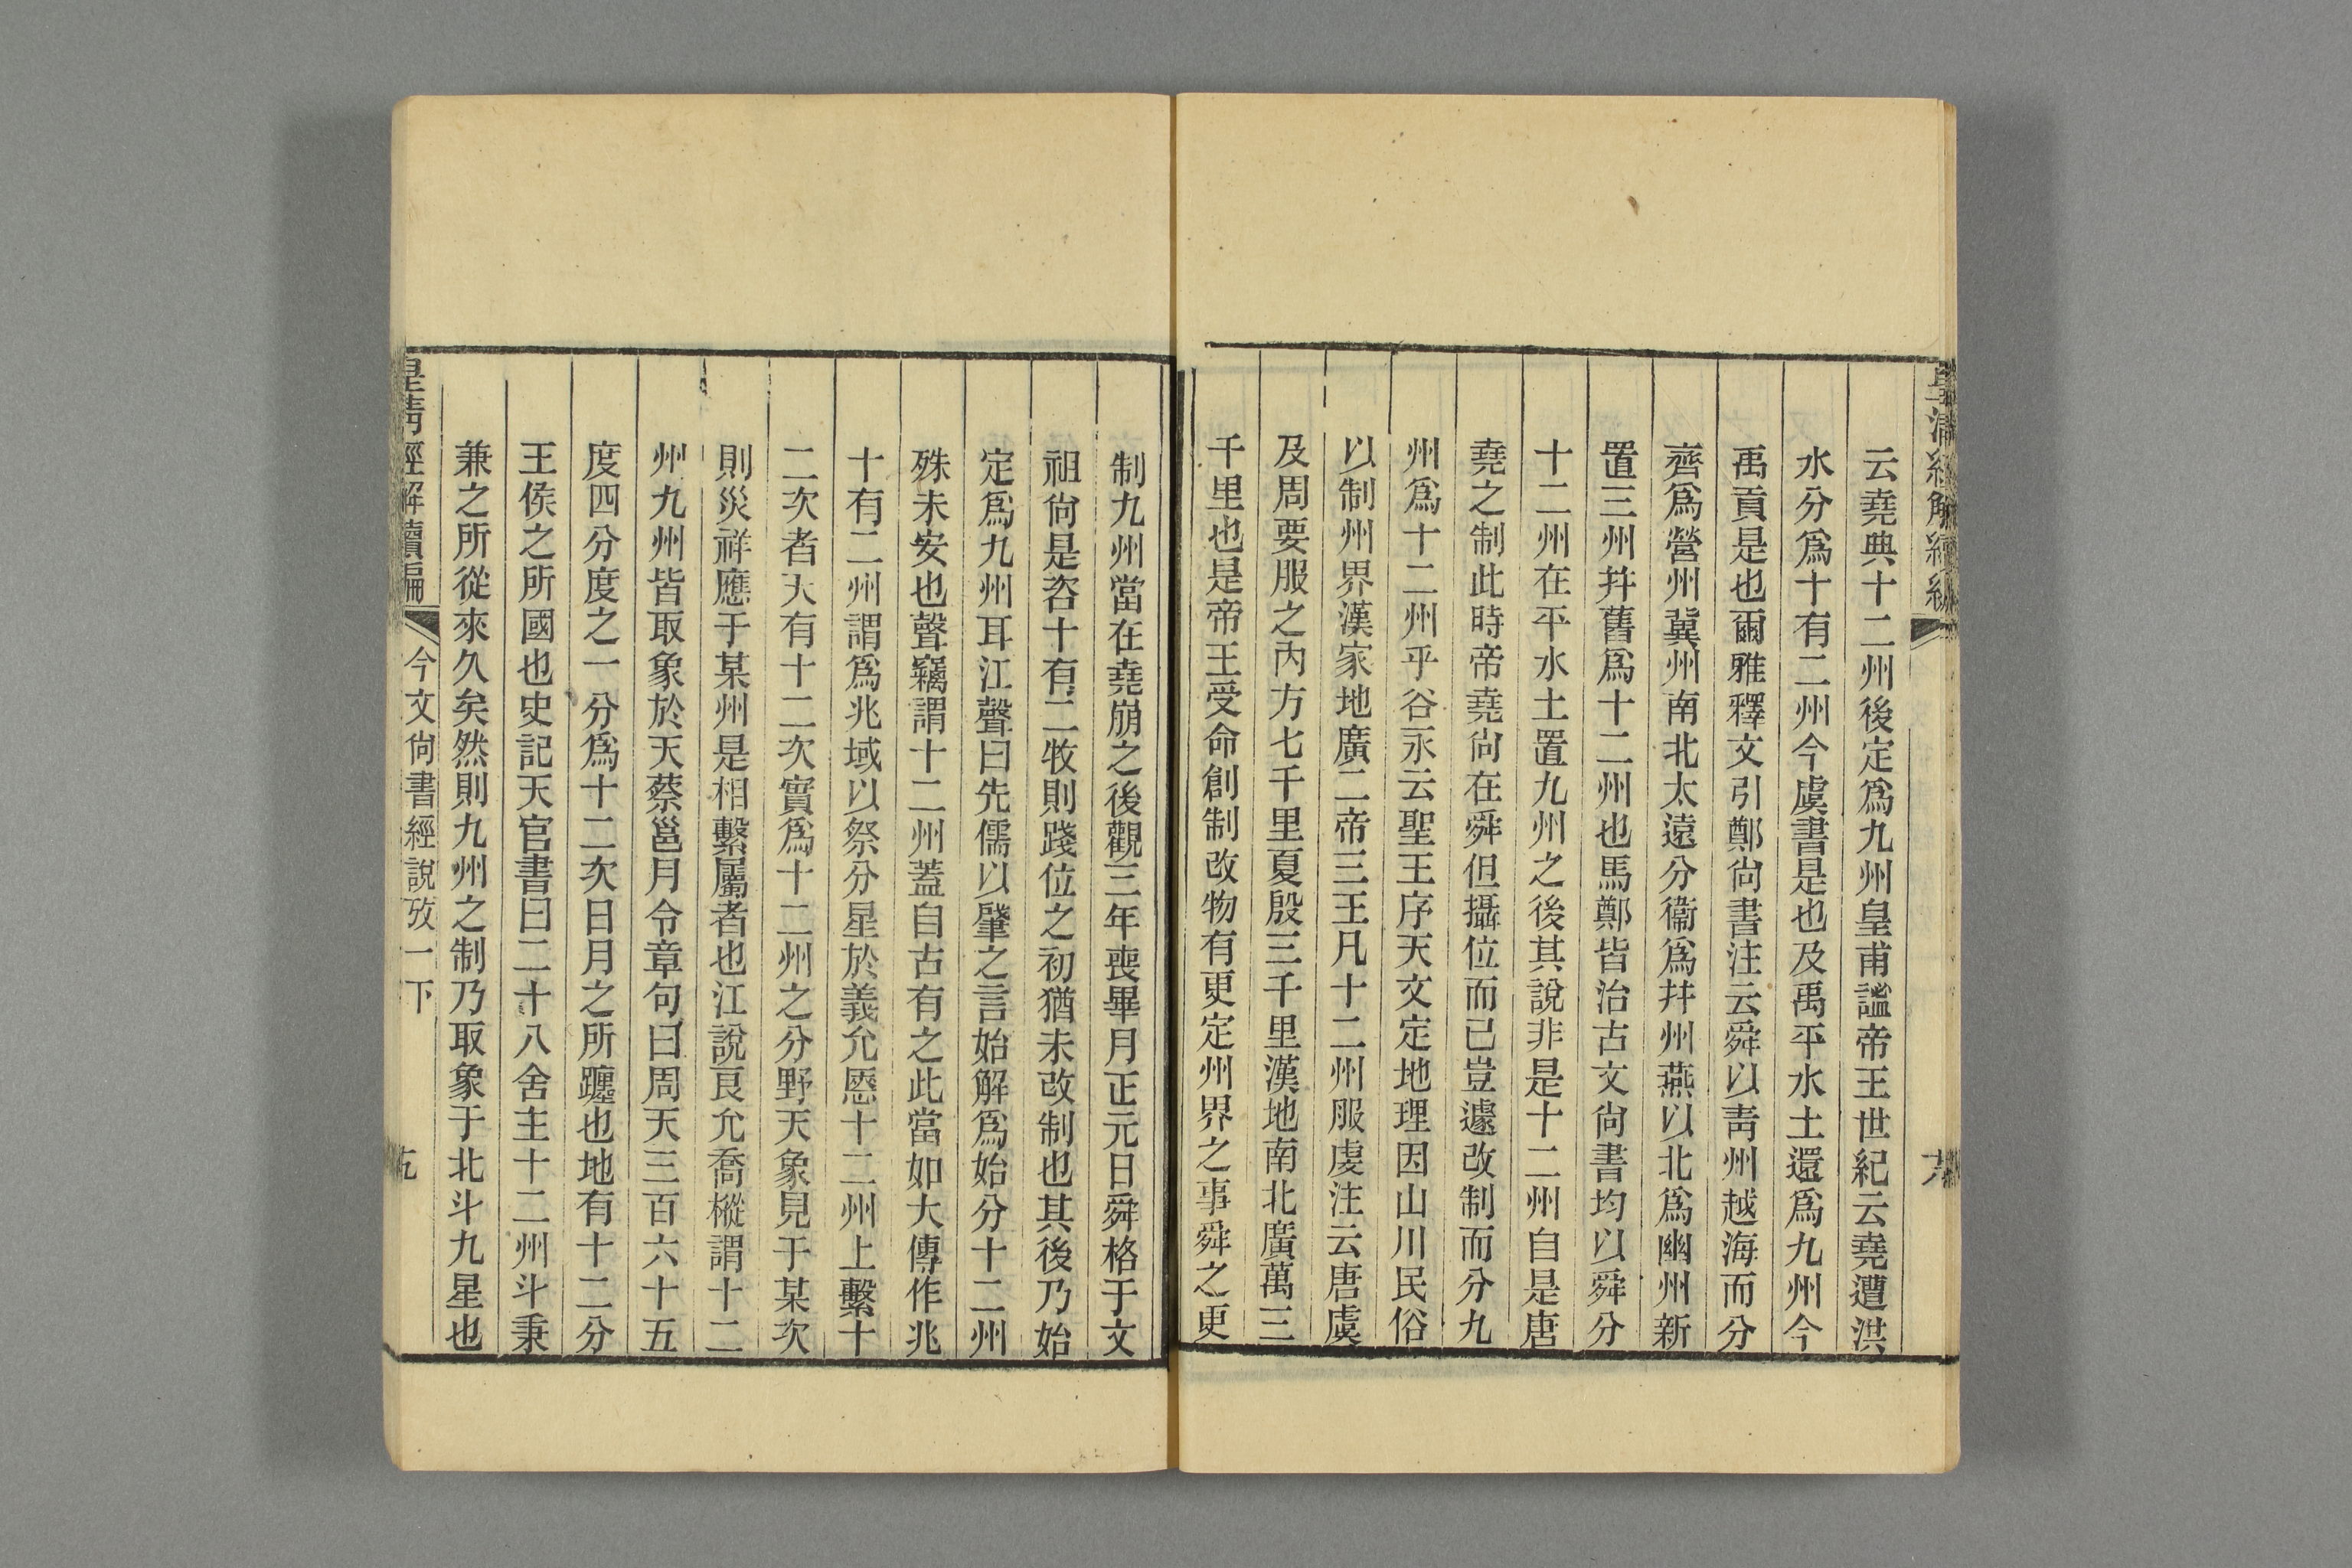 皇清經解續編
云堯典十二州後定爲九州皇甫謐帝王世紀云堯遭洪
水分爲十有二州今虞書是也及禹平水土還爲九州今
禹貢是也爾雅釋文引鄭尙書注云舜以靑州越海而分
齊爲營州冀州南北太遠分衞爲幷州燕以北爲幽州新
置三州幷舊爲十二州也馬鄭皆治古文尙書均以舜分
十二州在平水土置九州之後其說非是十二州自是唐
堯之制此時帝堯尙在舜但攝位而已豈遽改制而分九
州爲十二州乎谷永云聖王序天文定地理因山川民俗
以制州界漢家地廣二帝三王凡十二州服虔注云唐虞
及周要服之內方七千里夏殷三千里漢地南北廣萬三
千里也是帝王受命創制改物有更定州界之事舜之更
制九州當在堯崩之後觀三年喪畢月正元日舜格于文
祖尙是咨十有二牧則踐位之初猶未改制也其後乃始
定爲九州耳江聲曰先儒以肇之言始解爲始分十二州
殊未安也聲竊謂十二州蓋自古有之此當如大傳作兆
十有二州謂爲兆域以祭分星於義允愿十二州上繫十
二次者天有十二次實爲十二州之分野天象見于某次
則災祥應于某州是相繫屬者也江說良允喬樅謂十二
州九州皆取象於天蔡邕月令章句曰周天三百六十五
度四分度之一分爲十二次日月之所躔也地有十二分
王侯之所國也史記天官書曰二十八舍主十二州斗秉
兼之所從來久矣然則九州之制乃取象于北斗九星也
皇清經解續編
今文尙書經說攷一下